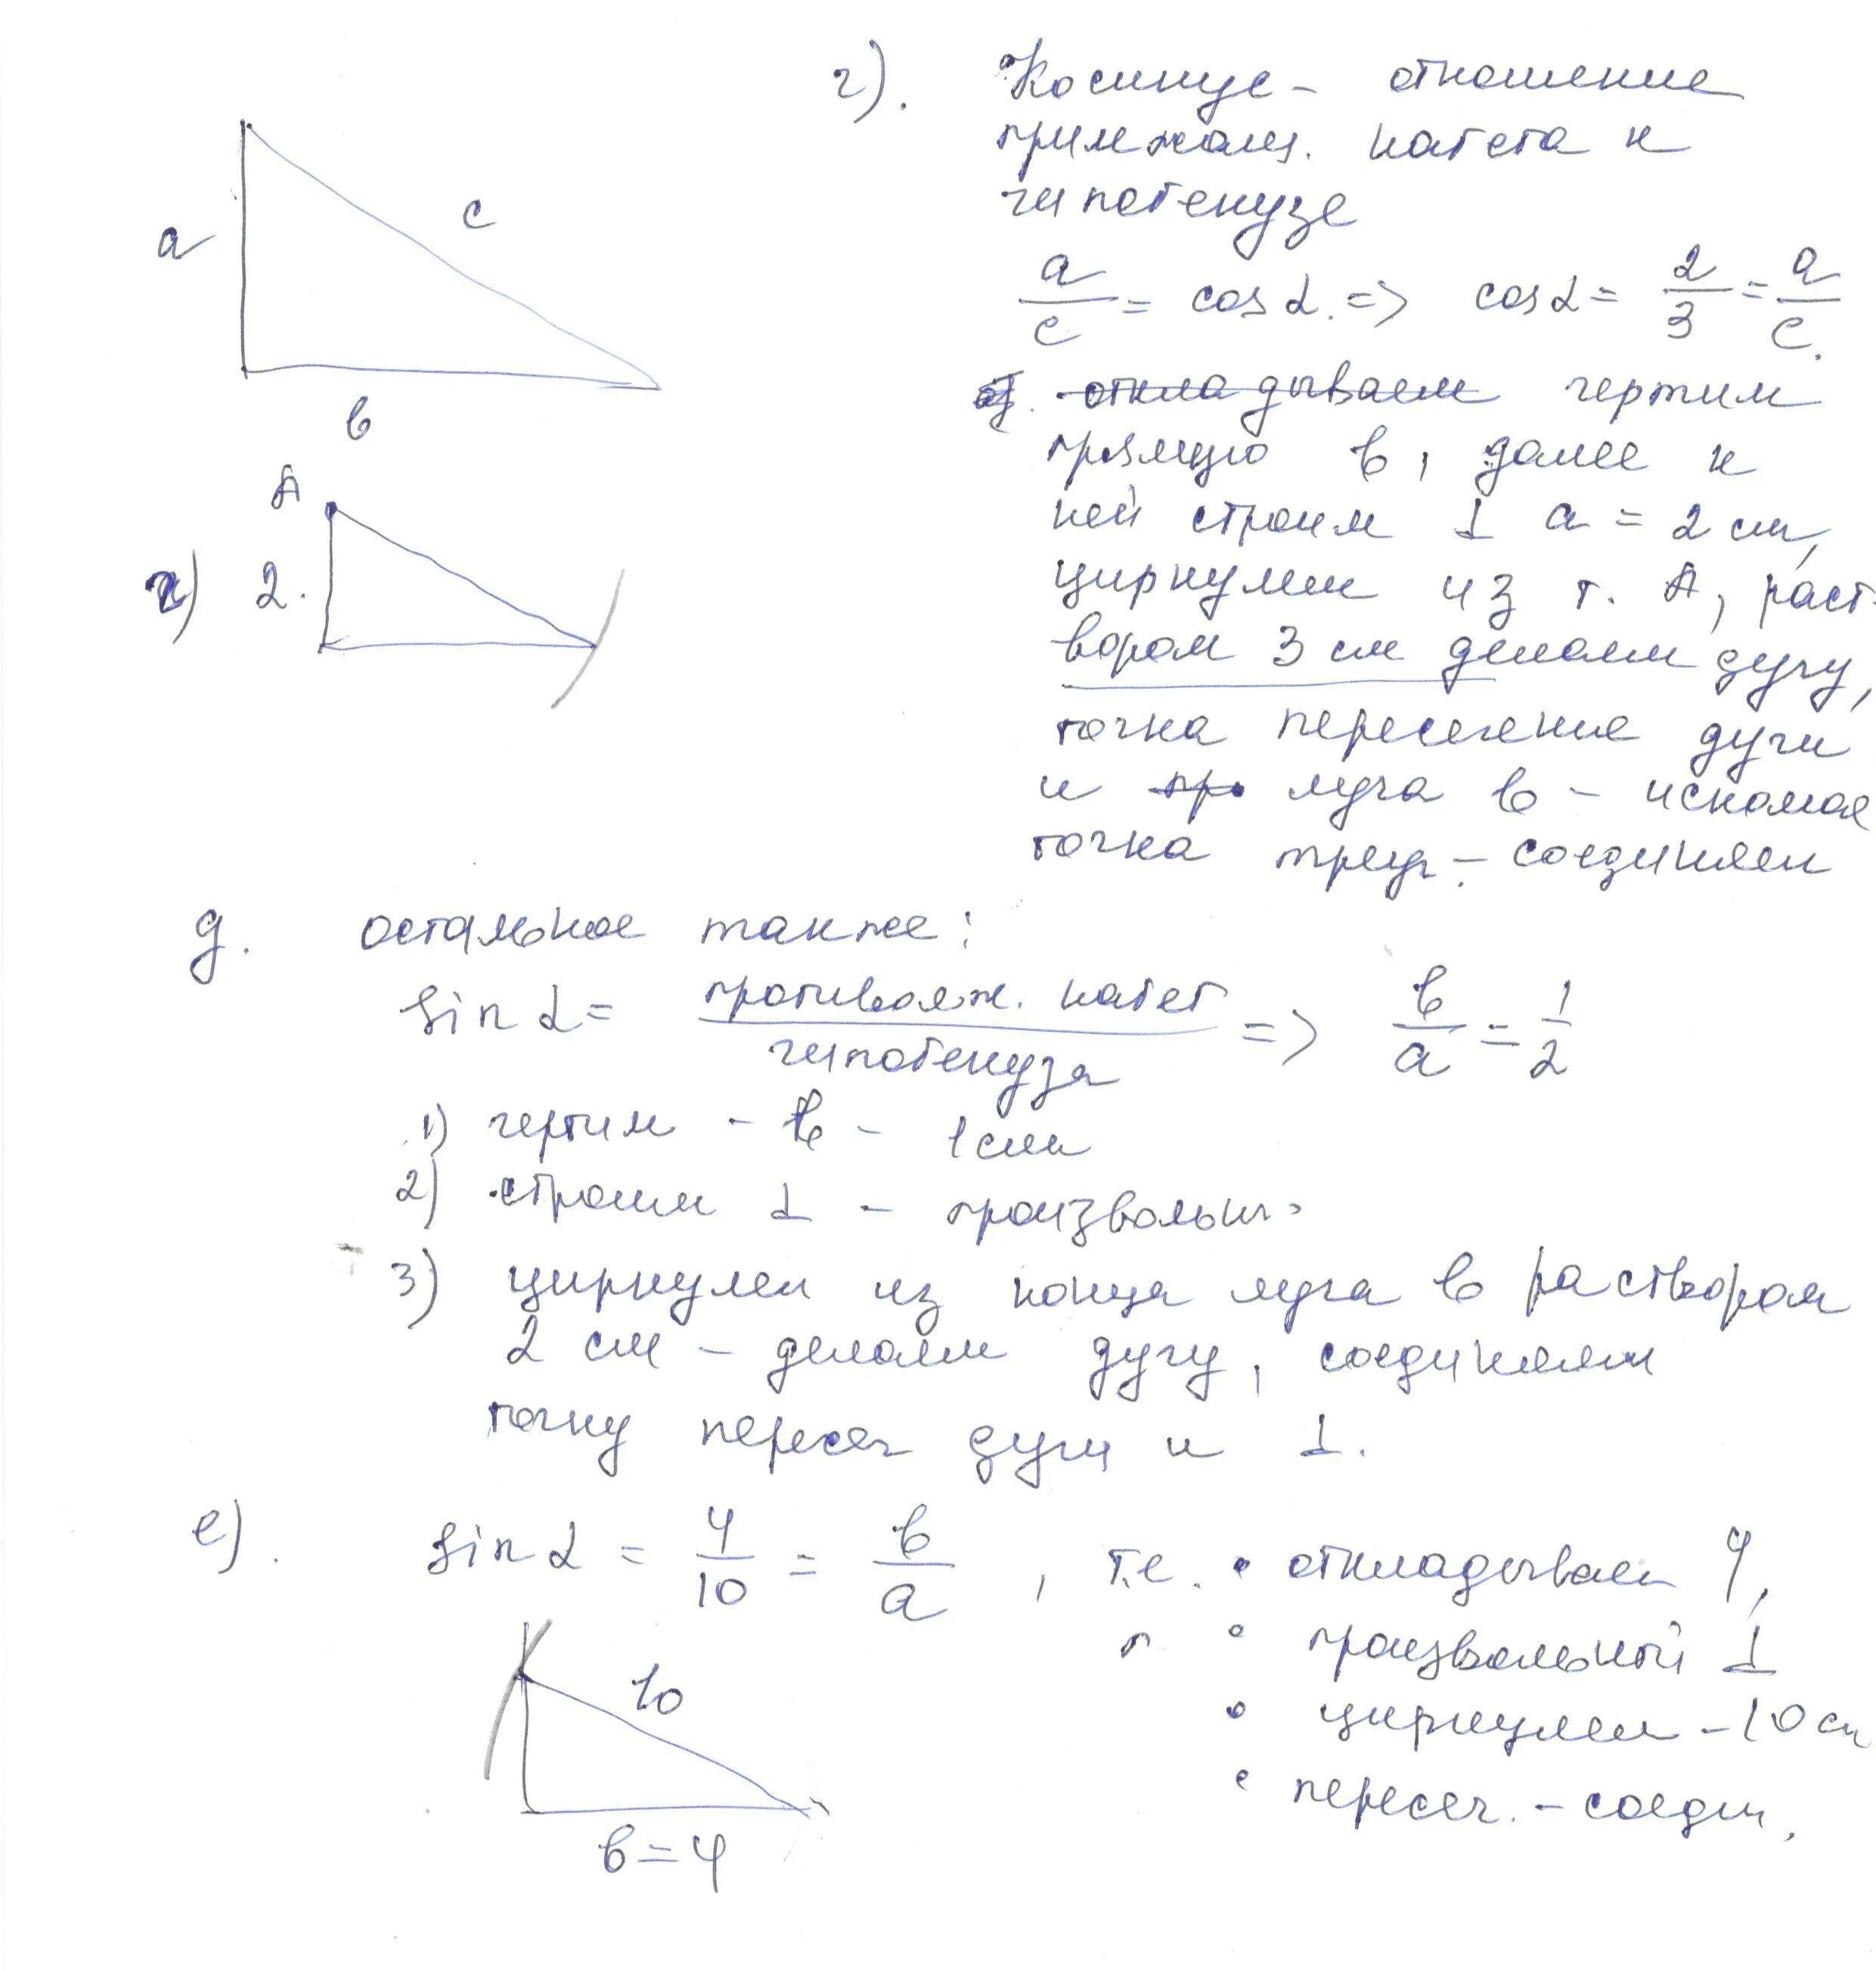 г).
Косинус - отношение
прилежащ. катета к
гипотенузе
a
c
b
a/c = cos α. => cos α = 2/3 = a/c.
откладываем чертим
прямую b, далее к
ней строим ⊥ a = 2 см,
A
г) 2.
циркулем из т. A, раст-
вором 3 см делаем дугу,
точка пересечение дуги
и пр луча b - искомая
точка треуг. - соединяем
д. остальное также:
sin α = противолеж. катет/гипотенуза => b/a = 1/2
1) чертим - b - 1 см
2) строим ⊥ - произвольн.
3) циркулем из конца луча b раствором
2 см - делаем дугу, соединяем
точку пересеч дуги и ⊥.
е). sin α = 4/10 = b/a, т.е. • откладываем 4,
• произвольной ⊥
10
• циркулем - 10 см
• пересеч. - соедин.
b = 4